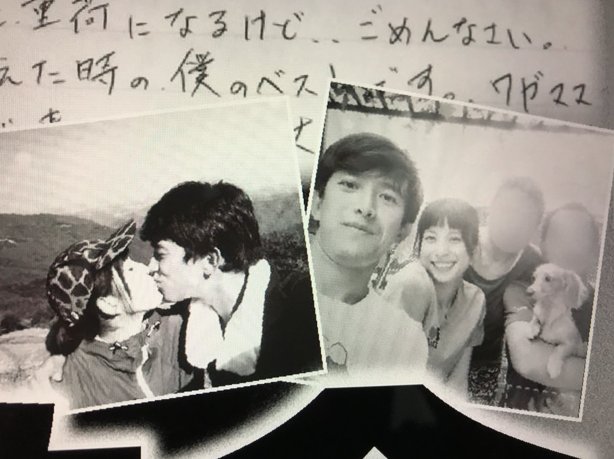 重荷になるけど..ごめんなさい。
えた時の僕のベストです。ワガママ